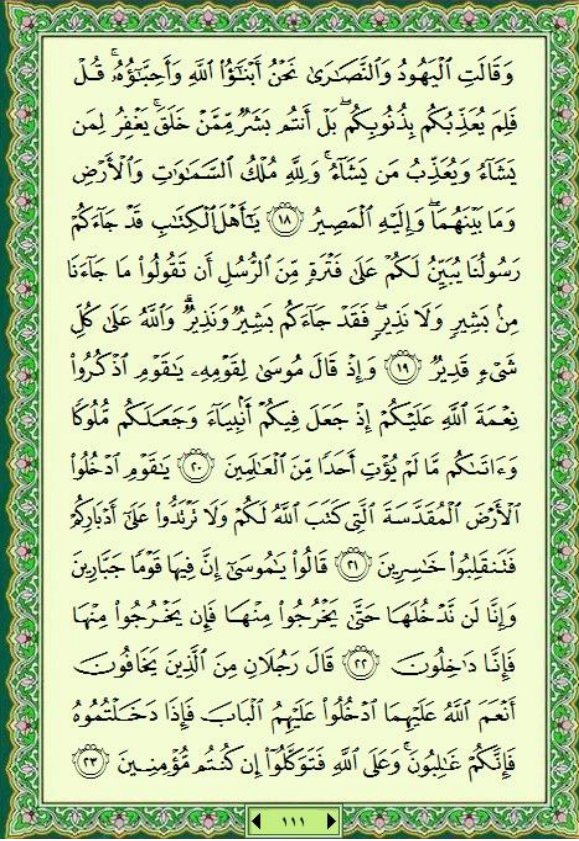 وَقَالَتِ ٱلۡيَهُودُ وَٱلنَّصَٰرَىٰ نَحۡنُ أَبۡنَٰٓؤُاْ ٱللَّهِ وَأَحِبَّٰٓؤُهُۥۚ قُلۡ
فَلِمَ يُعَذِّبُكُم بِذُنُوبِكُمۖ بَلۡ أَنتُم بَشَرٞ مِّمَّنۡ خَلَقَۚ يَغۡفِرُ لِمَن
يَشَآءُ وَيُعَذِّبُ مَن يَشَآءُۚ وَلِلَّهِ مُلۡكُ ٱلسَّمَٰوَٰتِ وَٱلۡأَرۡضِ
وَمَا بَيۡنَهُمَاۖ وَإِلَيۡهِ ٱلۡمَصِيرُ ١٨ يَٰٓأَهۡلَ ٱلۡكِتَٰبِ قَدۡ جَآءَكُمۡ
رَسُولُنَا يُبَيِّنُ لَكُمۡ عَلَىٰ فَتۡرَةٖ مِّنَ ٱلرُّسُلِ أَن تَقُولُواْ مَا جَآءَنَا
مِنۢ بَشِيرٖ وَلَا نَذِيرٖۖ فَقَدۡ جَآءَكُم بَشِيرٞ وَنَذِيرٞۗ وَٱللَّهُ عَلَىٰ كُلِّ
شَيۡءٖ قَدِيرٞ ١٩ وَإِذۡ قَالَ مُوسَىٰ لِقَوۡمِهِۦ يَٰقَوۡمِ ٱذۡكُرُواْ
نِعۡمَةَ ٱللَّهِ عَلَيۡكُمۡ إِذۡ جَعَلَ فِيكُمۡ أَنۢبِيَآءَ وَجَعَلَكُم مُّلُوكٗا
وَءَاتَىٰكُم مَّا لَمۡ يُؤۡتِ أَحَدٗا مِّنَ ٱلۡعَٰلَمِينَ ٢٠ يَٰقَوۡمِ ٱدۡخُلُواْ
ٱلۡأَرۡضَ ٱلۡمُقَدَّسَةَ ٱلَّتِي كَتَبَ ٱللَّهُ لَكُمۡ وَلَا تَرۡتَدُّواْ عَلَىٰٓ أَدۡبَارِكُمۡ
فَتَنقَلِبُواْ خَٰسِرِينَ ٢١ قَالُواْ يَٰمُوسَىٰٓ إِنَّ فِيهَا قَوۡمٗا جَبَّارِينَ
وَإِنَّا لَن نَّدۡخُلَهَا حَتَّىٰ يَخۡرُجُواْ مِنۡهَا فَإِن يَخۡرُجُواْ مِنۡهَا
فَإِنَّا دَٰخِلُونَ ٢٢ قَالَ رَجُلَانِ مِنَ ٱلَّذِينَ يَخَافُونَ
أَنۡعَمَ ٱللَّهُ عَلَيۡهِمَا ٱدۡخُلُواْ عَلَيۡهِمُ ٱلۡبَابَ فَإِذَا دَخَلۡتُمُوهُ
فَإِنَّكُمۡ غَٰلِبُونَۚ وَعَلَى ٱللَّهِ فَتَوَكَّلُوٓاْ إِن كُنتُم مُّؤۡمِنِينَ ٢٣
١١١